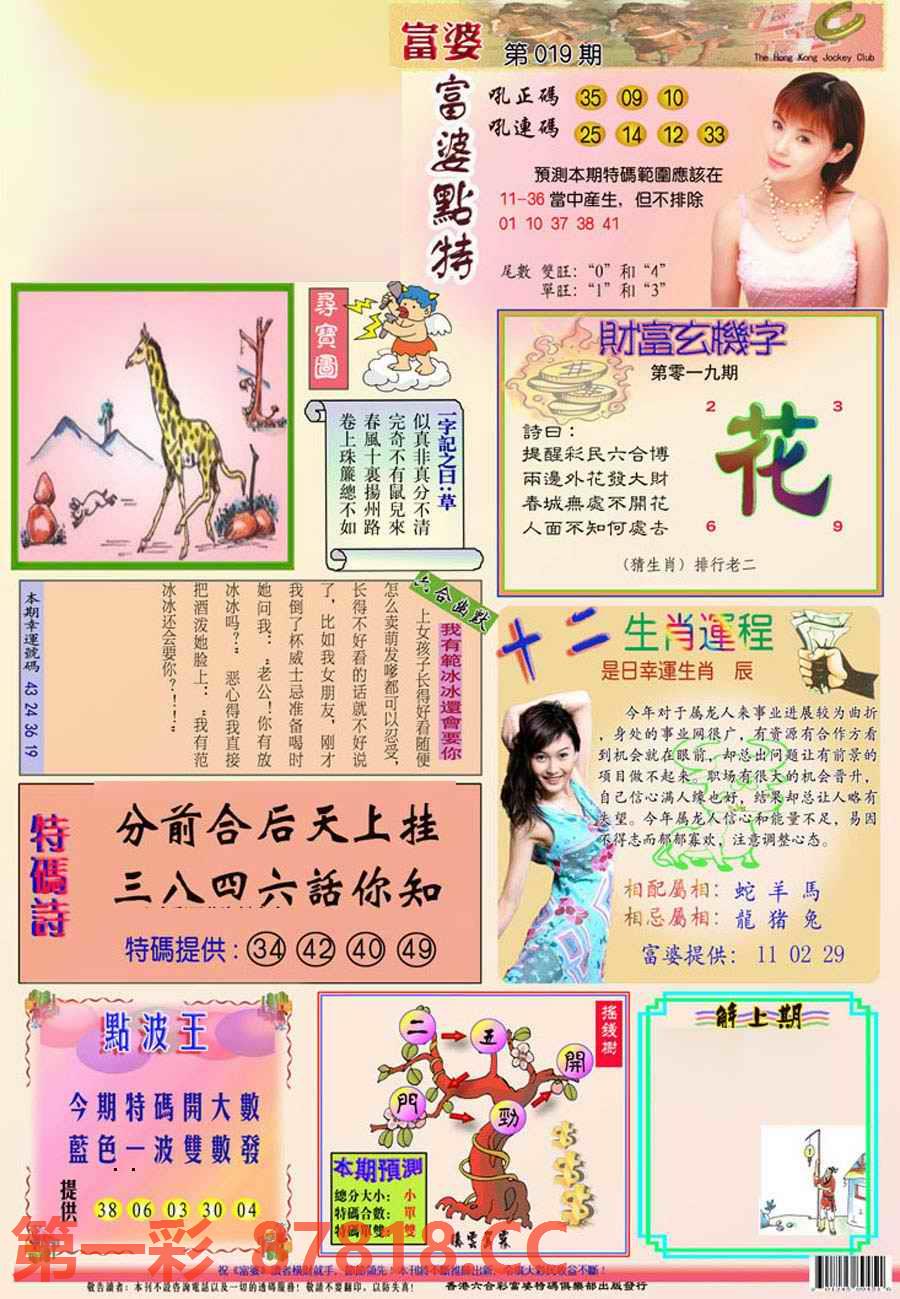 富婆 第 019 期
The Hong Kong Jockey Club
富婆點特
吼正碼 35 09 10
吼連碼 25 14 12 33
預測本期特碼範圍應該在
11-36 當中産生，但不排除
01 10 37 38 41
尾數 雙旺：“0”和“4”
單旺：“1”和“3”
尋寶圖
一字記之曰：草
似真非真分不清
完奇不有鼠兒來
春風十裏揚州路
卷上珠簾總不如
財富玄機字
第零一九期
詩曰：
提醒彩民六合博
兩邊外花發大財
春城無處不開花
人面不知何處去
2 3
花
6 9
（猜生肖）排行老二
六合幽默
我有範冰冰還會要你
上女孩子长得好看随便
怎么卖萌发嗲都可以忍受，
长得不好看的话就不好说
了，比如我女朋友，刚才
我倒了杯威士忌准备喝时
她问我：“老公！你有放
冰冰吗？” 恶心得我直接
把酒泼她脸上：“我有范
冰冰还会要你？！！”
本期幸運號碼 43 24 36 19
十二生肖運程
是日幸運生肖 辰
今年对于属龙人来事业进展较为曲折
，身处的事业网很广，有资源有合作方看
到机会就在眼前，却总出问题让有前景的
项目做不起来。职场有很大的机会晋升，
自己信心满人缘也好，结果却总让人略有
失望。今年属龙人信心和能量不足，易因
不得志而郁郁寡欢，注意调整心态。
相配屬相：蛇 羊 馬
相忌屬相：龍 猪 兔
富婆提供： 11 02 29
特碼詩
分前合后天上挂
三八四六話你知
特碼提供：34 42 40 49
點波王
今期特碼開大數
藍色一波雙數發
提供 38 06 03 30 04
搖錢樹
二 五 開 門 勁
本期預測
總分大小： 小
特碼合數： 單
特碼單雙： 雙
解上期
第一彩 87818.CC
敬告讀者：本刊不設咨詢電話以及一切的透碼服務！敬請不要翻印，以防失真！
香港六合彩富婆特碼俱樂部出版發行